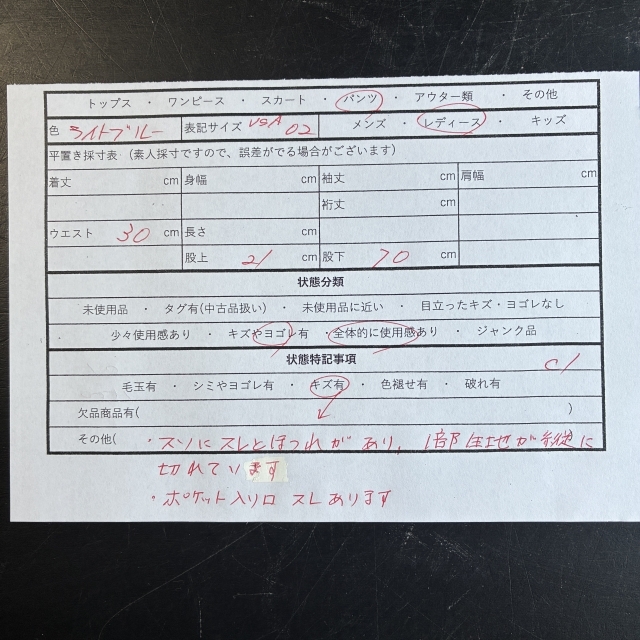 トップス ・ ワンピース ・ スカート ・ パンツ ・ アウター類 ・ その他
色 ライトブルー 表記サイズ USA 02 メンズ ・ レディース ・ キッズ
平置き採寸表(素人採寸ですので、誤差がでる場合がございます)
着丈 cm 身幅 cm 袖丈 cm 肩幅 cm
裄丈 cm
ウエスト 30 cm 長さ cm
股上 21 cm 股下 70 cm
状態分類
未使用品 ・ タグ有(中古品扱い) ・ 未使用品に近い ・ 目立ったキズ・ヨゴレなし
少々使用感あり ・ キズやヨゴレ有 ・ 全体的に使用感あり ・ ジャンク品
状態特記事項
毛玉有 ・ シミやヨゴレ有 ・ キズ有 ・ 色褪せ有 ・ 破れ有
欠品商品有( )
その他( ・スソにスレとほつれがあり、1部生地が縦に
切れています
・ポケット入り口 スレあります